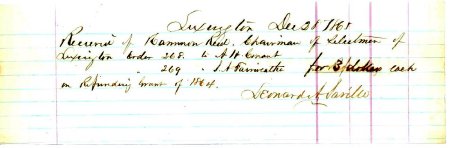 Lexington Dec 28 1868
Received of Hammon Reed, Chairman of Selectmen of
Lexington order 268. to A H Conant
" 269 " J A Fairweather for 3 dollars each
on Refunding Grant of 1864.
Leonard A Saville